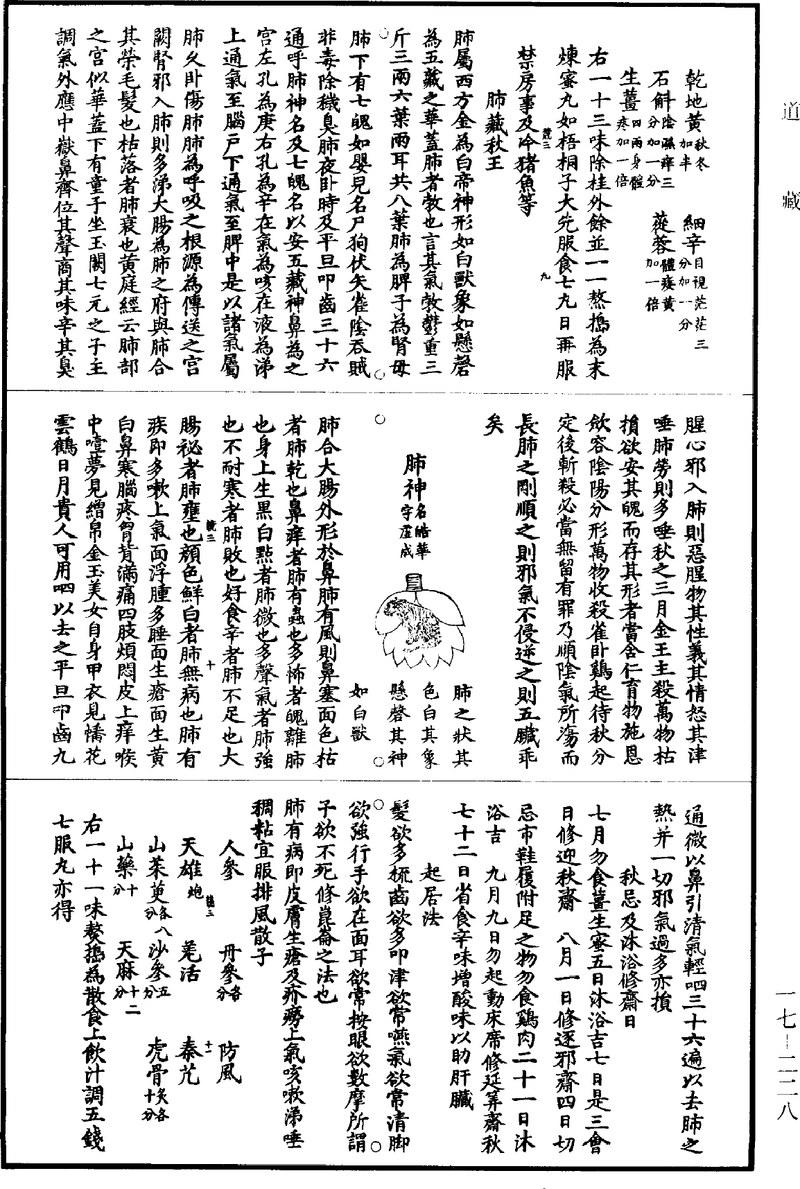 道藏
乾地黃秋冬加半　細辛目視茫茫三分加一分
石斛陰濕痒三分加一分　蓯蓉體痿黃加一倍
生薑四兩身體疼加一倍
右一十三味除桂外餘並一一熬擣為末
煉蜜丸如梧桐子大先服食七九日再服
禁房事及冷猪魚等
肺藏秋王
肺屬西方金為白帝神形如白獸象如懸磬
為五藏之華蓋肺者勃也言其氣勃鬱重三
斤三兩六葉兩耳共八葉肺為脾子為腎母
肺下有七魄如嬰兒名尸狗伏矢雀陰吞賊
非毒除穢臭肺夜卧時及平旦叩齒三十六
通呼肺神名及七魄名以安五藏神鼻為之
宮左孔為庚右孔為辛在氣為咳在液為涕
上通氣至腦戶下通氣至脾中是以諸氣屬
肺久卧傷肺肺為呼吸之根源為傳送之宮
闕腎邪入肺則多涕大腸為肺之府與肺合
其榮毛髮也枯落者肺衰也黃庭經云肺部
之宮似華蓋下有童子坐玉闕七元之子主
調氣外應中嶽鼻齊位其聲商其味辛其臭
腥心邪入肺則惡腥物其性義其情怒其津
唾肺勞則多唾秋之三月金王主殺萬物枯
損欲安其魄而存其形者當含仁育物施恩
歛容陰陽分形萬物收殺雀卧鷄起待秋分
定後斬殺必當無留有罪乃順陰氣所湯而
長肺之剛順之則邪氣不侵逆之則五臟乖
矣
肺神名皓華字虛成
肺之狀其
色白其象
懸磬其神
如白獸
肺合大腸外形於鼻肺有風則鼻塞面色枯
者肺乾也鼻痒者肺有蟲也多怖者魄離肺
也身上生黑白點者肺微也多聲氣者肺強
也不耐寒者肺敗也好食辛者肺不足也大
腸祕者肺壅也顏色鮮白者肺無病也肺有
疾即多嗽上氣面浮腫多睡面生瘡面生黃
白鼻寒腦疼胷背滿痛四肢煩悶皮上痒喉
中噎夢見繒帛金玉美女自身甲衣見幡花
雲鶴日月貴人可用呬以去之平旦叩齒九
通微以鼻引清氣輕呬三十六遍以去肺之
熱并一切邪氣過多亦損
秋忌及沐浴修齋日
七月勿食薑生蜜五日沐浴吉七日是三會
日修迎秋齋　八月一日修逐邪齋四日切
忌市鞋履附足之物勿食鷄肉二十一日沐
浴吉　九月九日勿起動床席修延筭齋秋
七十二日省食辛味增酸味以助肝臟
起居法
髮欲多梳齒欲多叩津欲常嚥氣欲常清脚
欲強行手欲在面耳欲常按眼欲數摩所謂
子欲不死修崑崙之法也
肺有病即皮膚生瘡及疥癆上氣咳嗽涕唾
稠粘宜服排風散子
人參　丹參各分　防風
天雄炮　羌活　秦艽十二
山茱萸各八分　沙參五分　虎骨炙各十分
山藥十分　天麻十二分
右一十一味熬擣為散食上飲汁調五錢
七服丸亦得
一七—二二八